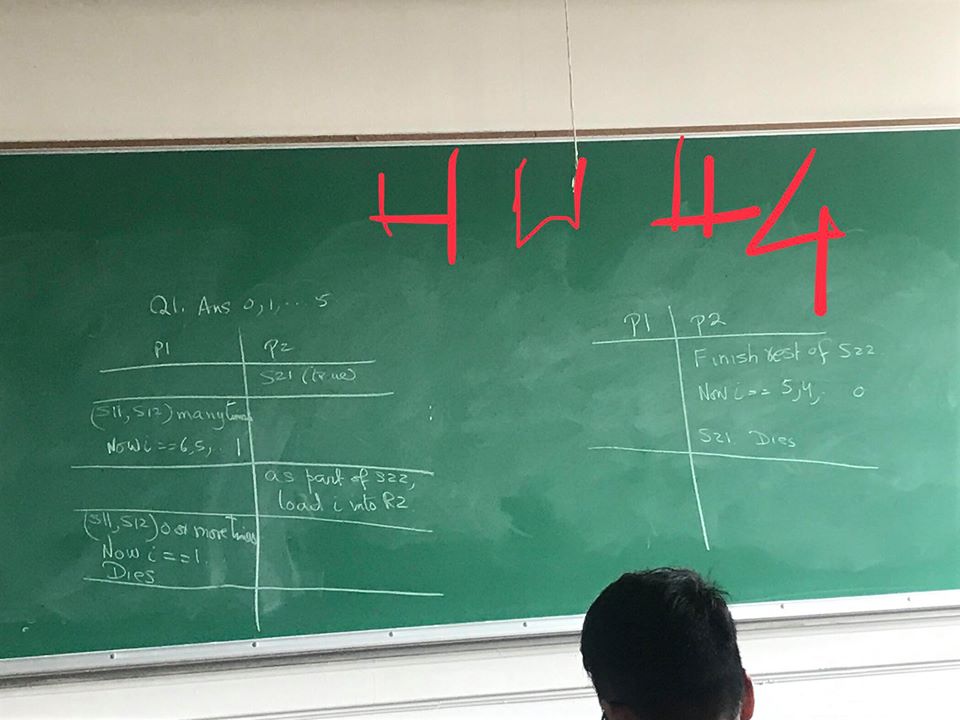 HW #4
Q1. Ans 0,1,... 5
P1 P2
S21 (true)
(S11, S12) many times
Now i == 6,5,.. 1
as part of S22,
load i into R2
(S11, S12) 0 or more times
Now i == 1.
Dies
P1 P2
Finish rest of S22
Now i == 5,4,.. 0
S21 Dies